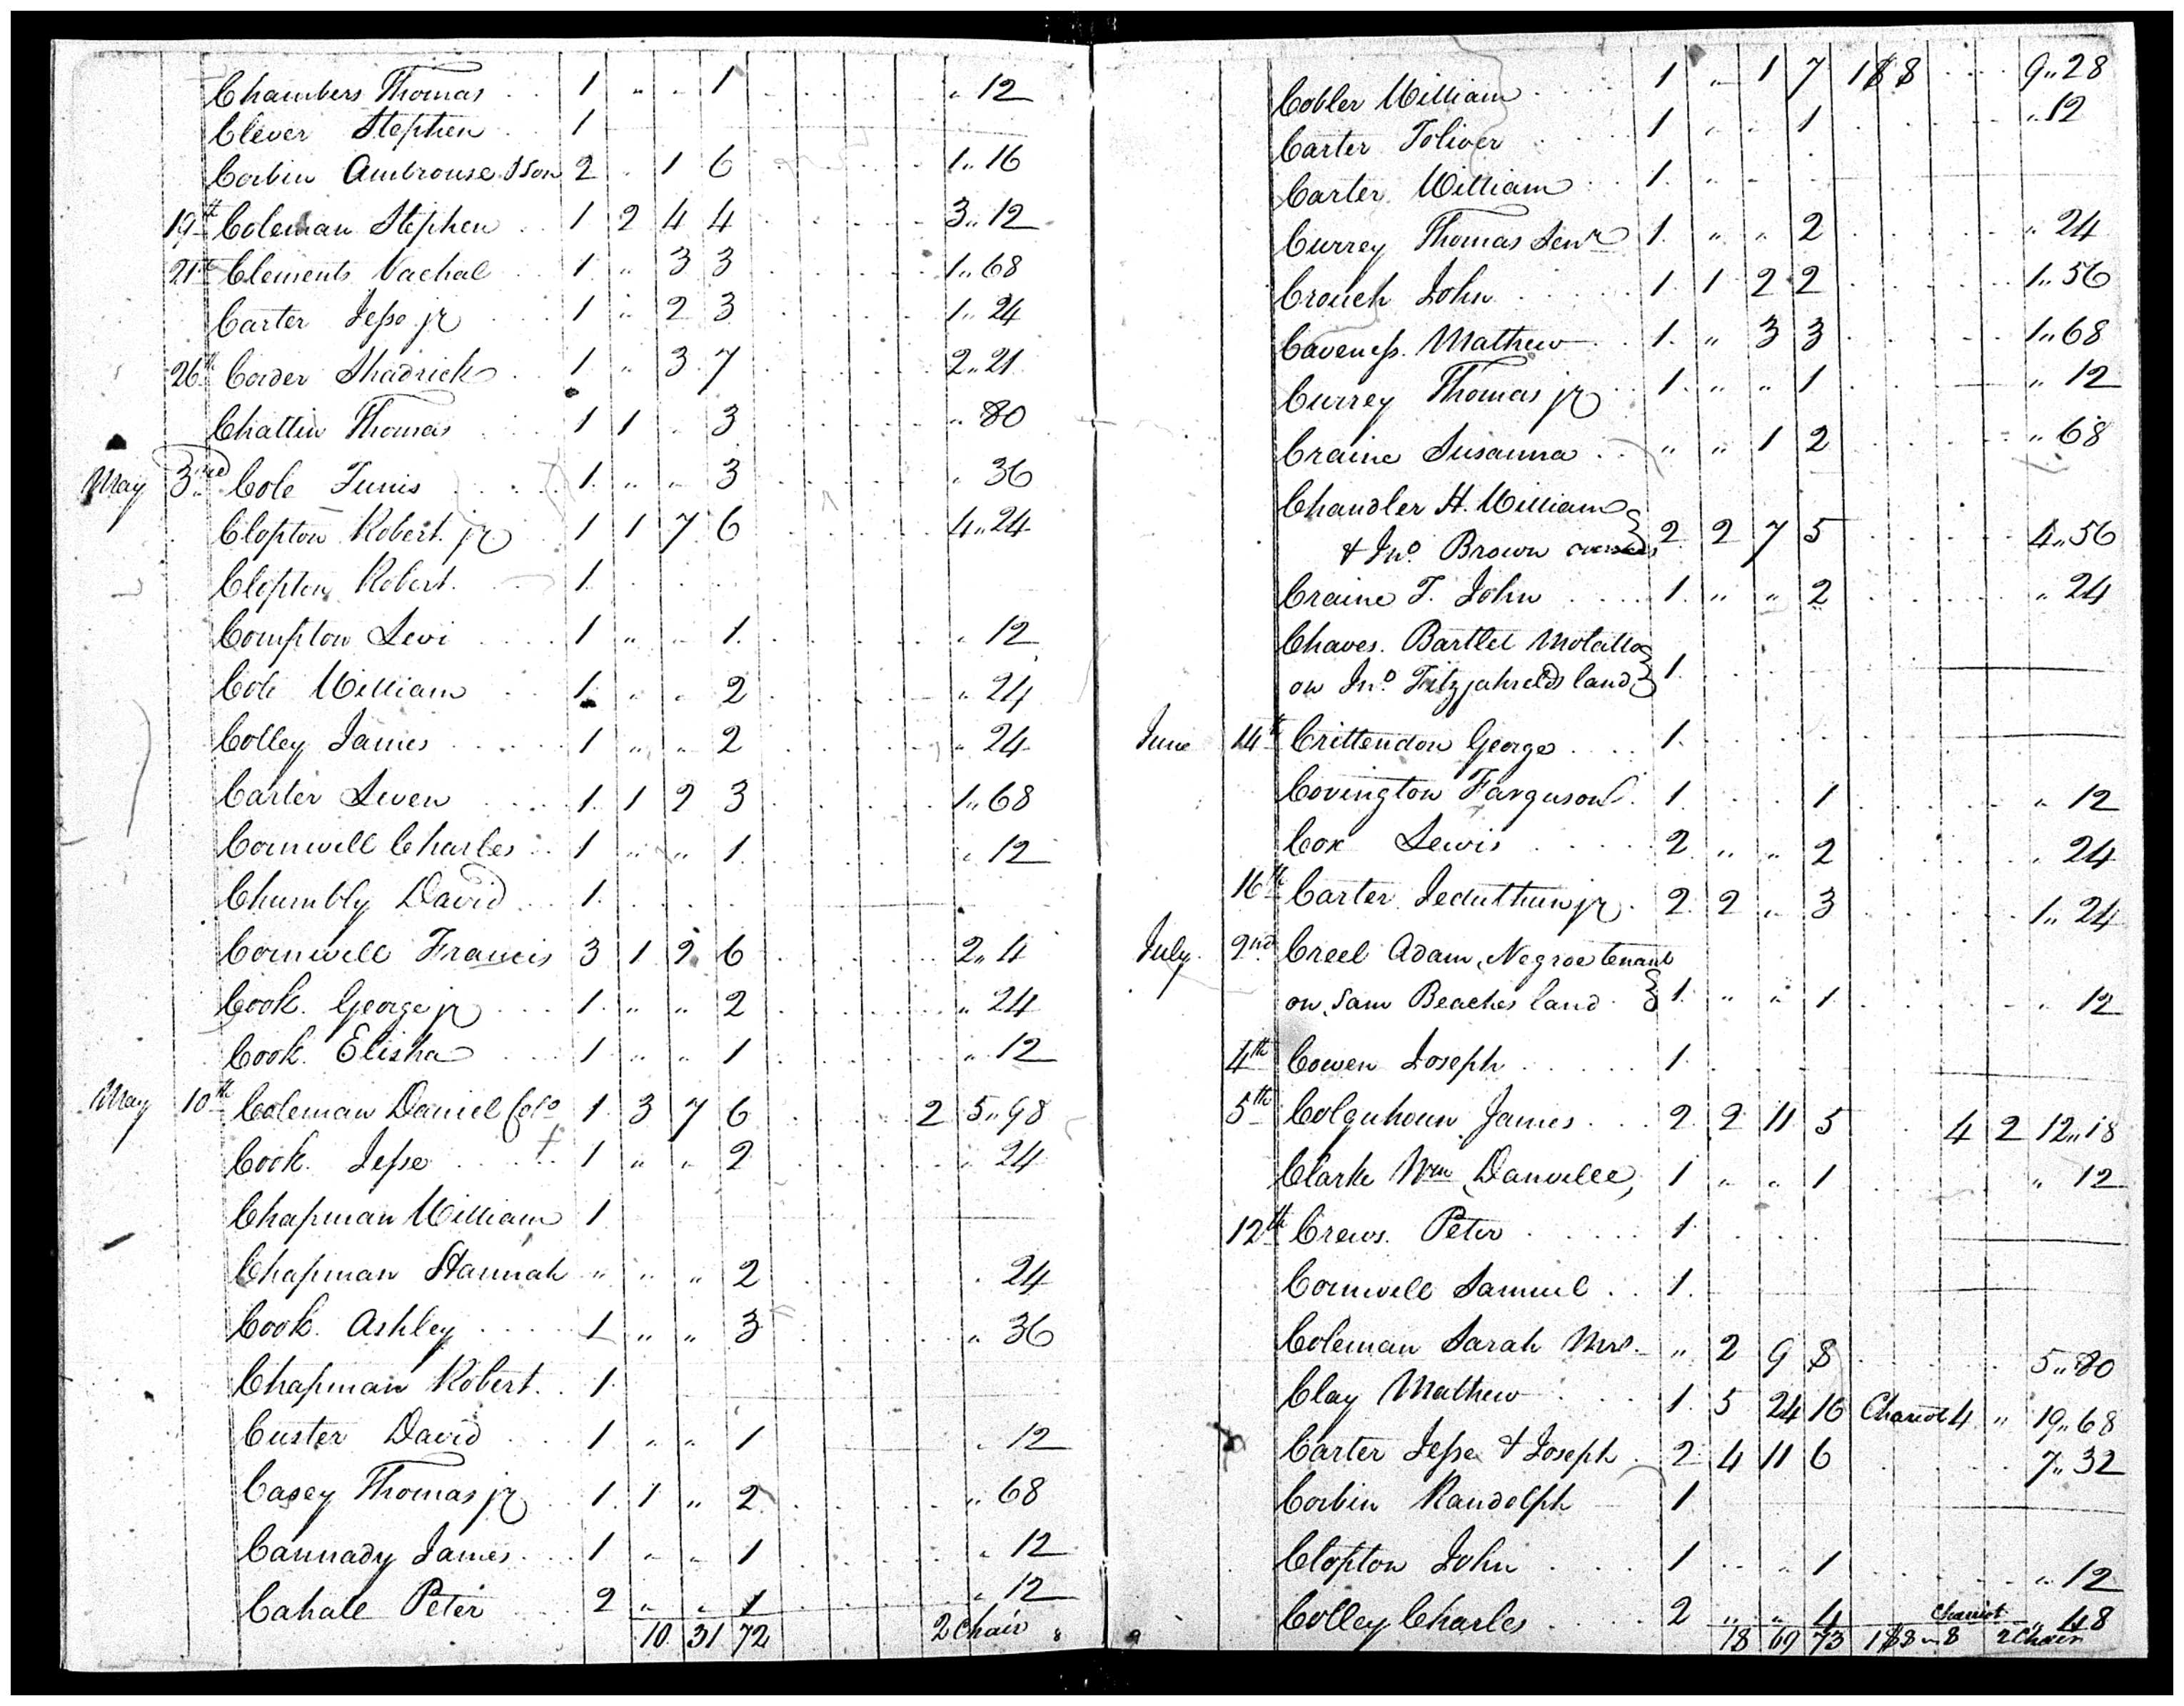 Chambers Thomas 1 " . 1 " 12
Clever Stephen 1
Corbin Ambrouse & son 2 . 1 6 1 " 16
19th Coleman Stephen 1 2 4 4 3 " 12
21st Clements Vachal 1 " 3 3 1 " 68
Carter Jesse jr 1 " 2 3 1 " 24
26th Corder Shadrick 1 " 3 7 2 " 21
Chattin Thomas 1 1 . 3 " 80
May 3rd Cole Tunis 1 " " 3 " 36
Clopton Robert jr 1 1 7 6 4 " 24
Clopton Robert 1
Compton Levi 1 " " 1 " 12
Cole William 1 " " 2 " 24
Colley James 1 " " 2 " 24
Carter Leven 1 1 2 3 1 " 68
Cornwell Charles 1 " " 1 " 12
Chumbly David 1
Cornwell Francis 3 1 2 6 2 " 4
Cook George jr 1 " " 2 " 24
Cook Elisha 1 " " 1 " 12
May 10th Coleman Daniel Colo 1 3 7 6 2 5 " 98
Cook Jesse 1 " " 2 " 24
Chapman William 1
Chapman Hannah " " " 2 " 24
Cook Ashley 1 " " 3 " 36
Chapman Robert 1
Custer David 1 " " 1 " 12
Casey Thomas jr 1 1 " 2 " 68
Cannady James 1 " " 1 " 12
Cahall Peter 2 " " 1 " 12
10 31 72 2 Chair 8
Cobler William 1 " 1 7 188 9 " 28
Carter Toliver 1 " " 1 " 12
Carter William 1 " "
Currey Thomas Senr 1 " " 2 " 24
Crouch John 1 1 2 2 1 " 56
Caveness Mathew 1 " 3 3 1 " 68
Currey Thomas jr 1 " " 1 " 12
Craine Susanna " " 1 2 " 68
Chandler H. William
& Jno. Brown overseer 2 2 7 5 4 " 56
Craine T. John 1 " " 2 " 24
Chaves Bartlet Molatto
on Jno. Fitzjahrelds land 1
June 14th Crittendon George 1
Covington Farguson 1 1 " 12
Cox Lewis 2 " " 2 " 24
16th Carter Jeduthun jr 2 2 " 3 1 " 24
July 2nd Creel Adam, Negroe tenant
on Sam Beaches land 1 " " 1 " 12
4th Cowen Joseph 1
5th Colquhoun James 2 2 11 5 4 2 12 " 18
Clark Wm Danville, 1 " " 1 " 12
12th Crews Peter 1
Cornwell Samuel 1
Coleman Sarah Mrs " 2 9 8 5 " 80
Clay Mathew 1 5 24 16 Chariot 4 " 19 " 68
Carter Jesse & Joseph 2 4 11 6 7 " 32
Corbin Randolph 1
Clopton John 1 " " 1 " 12
Colley Charles 2 " " 4 " 48
9 18 69 73 188 " 8 Chariot 2 Chair